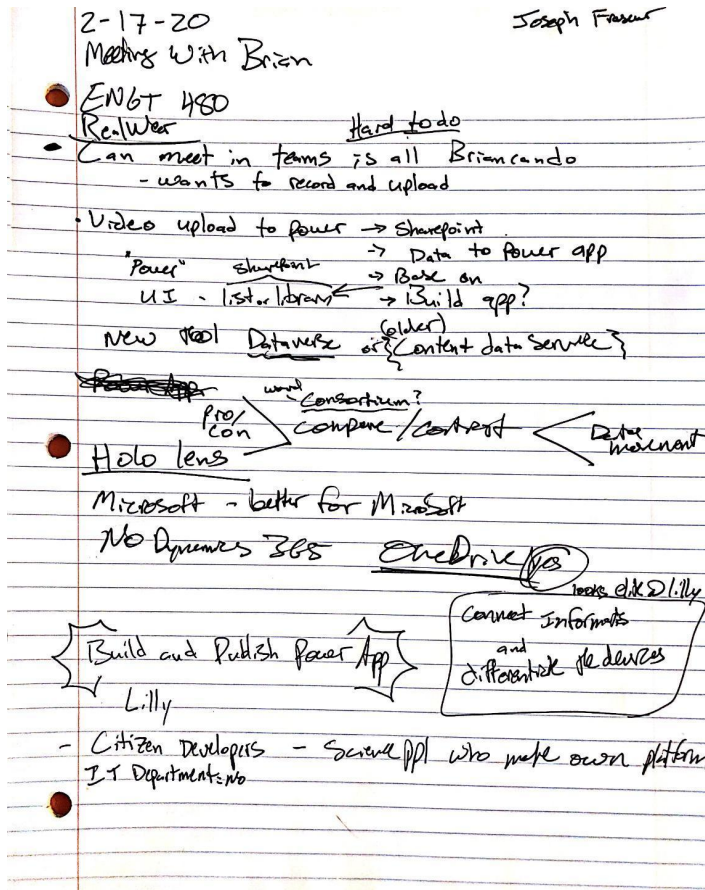 2-17-20
Joseph Fraseur
Meeting With Brian
ENGT 480
RealWear
Hard to do
Can meet in teams is all Brian can do
- wants to record and upload
· Video upload to power → Sharepoint
→ Data to Power app
"Power" sharepoint → Base on
UI - list or library ← → Build app?
New tool Dataverse or (older) {Content data Service}
word Consortium?
Pro/con compare / contrast Data movement
Holo lens
Microsoft - better for Microsoft
No Dynamics 365 OneDrive/yes
looks @ Lilly
Connect Informats
and
differentiate the devices
Build and Publish Power App
Lilly
- Citizen Developers - Science ppl who make own platform
IT Department: No